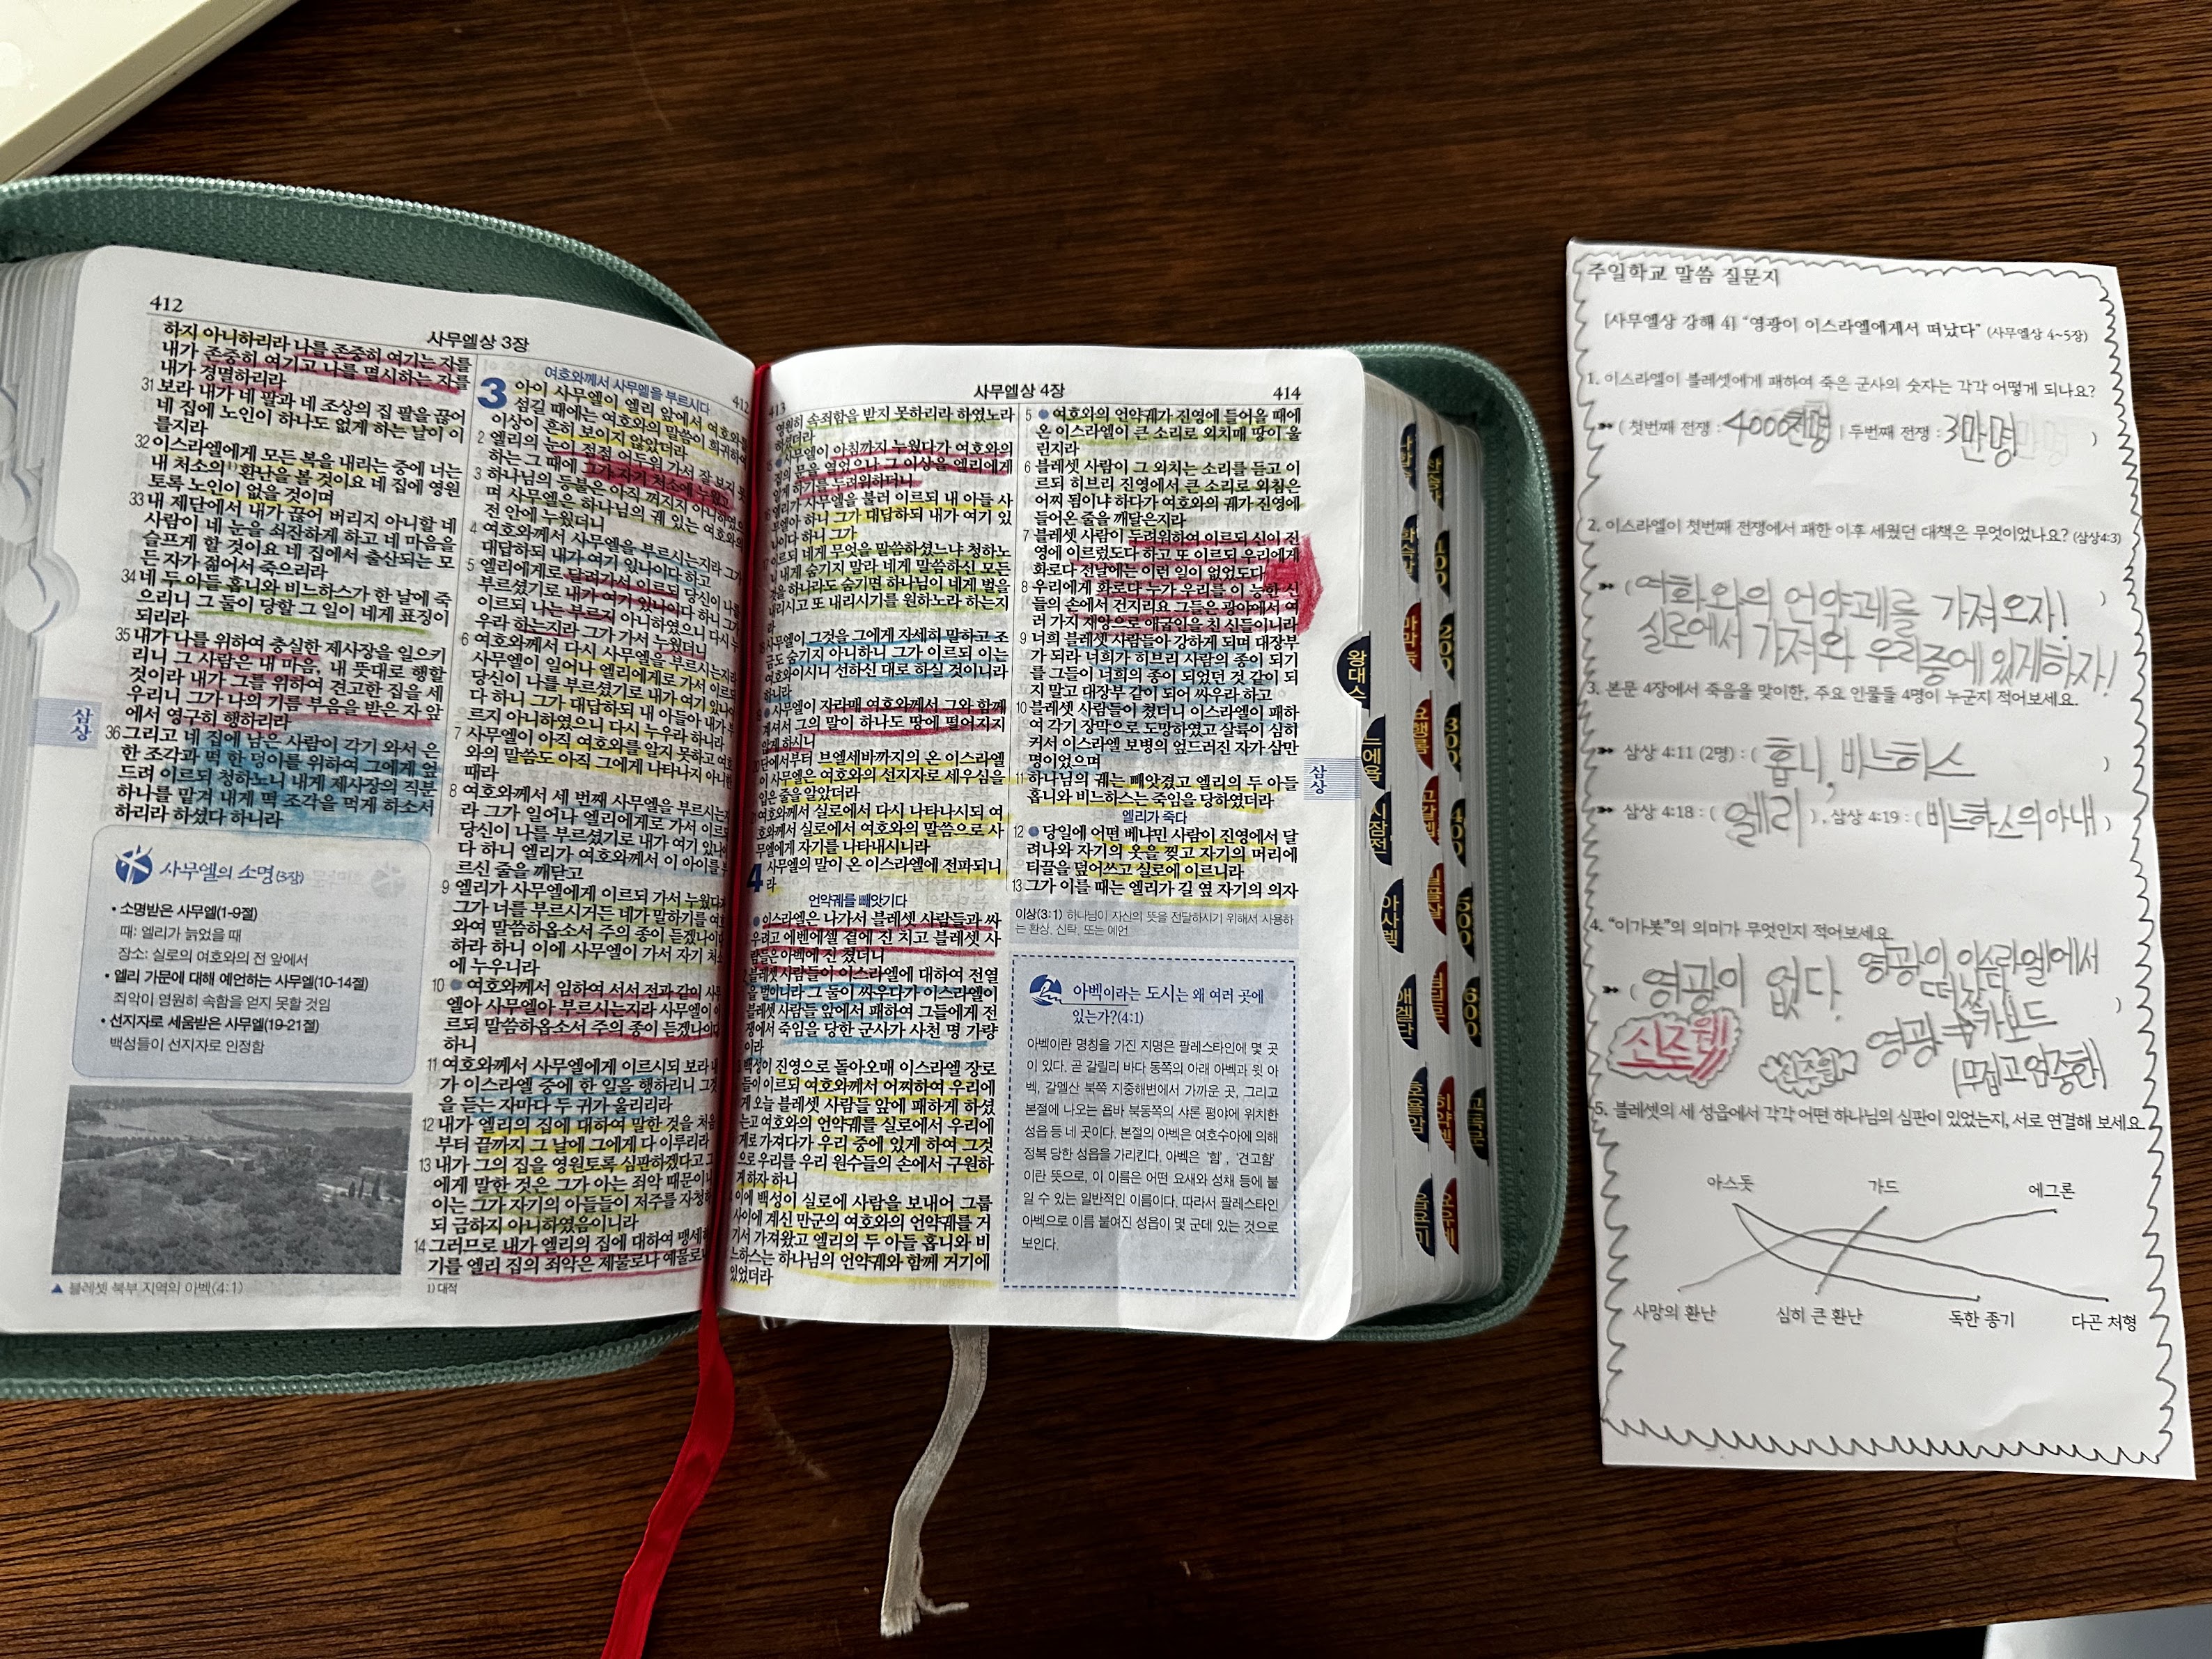 412
사무엘상 3장
하지 아니하리라 나를 존중히 여기는 자를
내가 존중히 여기고 나를 멸시하는 자를
내가 경멸하리라
31 보라 내가 네 팔과 네 조상의 집 팔을 끊어
네 집에 노인이 하나도 없게 하는 날이 이
를지라
32 이스라엘에게 모든 복을 내리는 중에 너는
내 처소의 1)환난을 볼 것이요 네 집에 영원
토록 노인이 없을 것이며
33 내 제단에서 내가 끊어 버리지 아니할 네
사람이 네 눈을 쇠잔하게 하고 네 마음을
슬프게 할 것이요 네 집에서 출산되는 모
든 자가 젊어서 죽으리라
34 네 두 아들 홉니와 비느하스가 한 날에 죽
으리니 그 둘이 당할 그 일이 네게 표징이
되리라
35 내가 나를 위하여 충실한 제사장을 일으키
리니 그 사람은 내 마음, 내 뜻대로 행할
것이라 내가 그를 위하여 견고한 집을 세
우리니 그가 나의 기름 부음을 받은 자 앞
에서 영구히 행하리라
36 그리고 네 집에 남은 사람이 각기 와서 은
한 조각과 떡 한 덩이를 위하여 그에게 엎
드려 이르되 청하노니 내게 제사장의 직분
하나를 맡겨 내게 떡 조각을 먹게 하소서
하리라 하셨다 하니라
삼상
사무엘의 소명(3장)
• 소명받은 사무엘(1-9절)
때: 엘리가 늙었을 때
장소: 실로의 여호와의 전 앞에서
• 엘리 가문에 대해 예언하는 사무엘(10-14절)
죄악이 영원히 속함을 얻지 못할 것임
• 선지자로 세움받은 사무엘(19-21절)
백성들이 선지자로 인정함
▲ 블레셋 북부 지역의 아벡(4:1)
여호와께서 사무엘을 부르시다
3 아이 사무엘이 엘리 앞에서 여호와를
섬길 때에는 여호와의 말씀이 희귀하여
이상이 흔히 보이지 않았더라
2 엘리의 눈이 점점 어두워 가서 잘 보지 못
하는 그 때에 그가 자기 처소에 누웠고
3 하나님의 등불은 아직 꺼지지 아니하였으
며 사무엘은 하나님의 궤 있는 여호와의
전 안에 누웠더니
4 여호와께서 사무엘을 부르시는지라 그가
대답하되 내가 여기 있나이다 하고
5 엘리에게로 달려가서 이르되 당신이 나를
부르셨기로 내가 여기 있나이다 하니 그가
이르되 나는 부르지 아니하였으니 다시
우라 하는지라 그가 가서 누웠더니
6 여호와께서 다시 사무엘을 부르시는지라
사무엘이 일어나 엘리에게로 가서 이르되
당신이 나를 부르셨기로 내가 여기 있나이
다 하니 그가 대답하되 내 아들아 내가
르지 아니하였으니 다시 누우라 하니라
7 사무엘이 아직 여호와를 알지 못하고 여호
와의 말씀도 아직 그에게 나타나지 아니한
때라
8 여호와께서 세 번째 사무엘을 부르시는
라 그가 일어나 엘리에게로 가서 이르되
당신이 나를 부르셨기로 내가 여기 있나이
다 하니 엘리가 여호와께서 이 아이를
르신 줄을 깨닫고
9 엘리가 사무엘에게 이르되 가서 누웠다가
그가 너를 부르시거든 네가 말하기를 여호
와여 말씀하옵소서 주의 종이 듣겠나이다
하라 하니 이에 사무엘이 가서 자기 처소
에 누우니라
10 여호와께서 임하여 서서 전과 같이 사무
엘아 사무엘아 부르시는지라 사무엘이
르되 말씀하옵소서 주의 종이 듣겠나이다
하니
11 여호와께서 사무엘에게 이르시되 보라 내
가 이스라엘 중에 한 일을 행하리니 그것
을 듣는 자마다 두 귀가 울리리라
12 내가 엘리의 집에 대하여 말한 것을 처음
부터 끝까지 그 날에 그에게 다 이루리라
13 내가 그의 집을 영원토록 심판하겠다고 그
에게 말한 것은 그가 아는 죄악 때문이니
이는 그가 자기의 아들들이 저주를 자청하
되 금하지 아니하였음이니라
14 그러므로 내가 엘리의 집에 대하여 맹세하
기를 엘리 집의 죄악은 제물로나 예물로나
1) 대적
413
사무엘상 4장
414
영원히 속죄함을 받지 못하리라 하였노라
하셨더라
사무엘이 아침까지 누웠다가 여호와의
집의 문을 열었으나 그 이상을 엘리에게
알게 하기를 두려워하더니
엘리가 사무엘을 불러 이르되 내 아들 사
무엘아 하니 그가 대답하되 내가 여기 있
나이다 하니 그가
이르되 네게 무엇을 말씀하셨느냐 청하노
니 내게 숨기지 말라 네게 말씀하신 모든
것을 하나라도 숨기면 하나님이 네게 벌을
내리시고 또 내리시기를 원하노라 하는지
라
사무엘이 그것을 그에게 자세히 말하고 조
금도 숨기지 아니하니 그가 이르되 이는
여호와이시니 선하신 대로 하실 것이니라
하니라
사무엘이 자라매 여호와께서 그와 함께
계셔서 그의 말이 하나도 땅에 떨어지지
않게 하시니
단에서부터 브엘세바까지의 온 이스라엘
이 사무엘은 여호와의 선지자로 세우심을
입은 줄을 알았더라
여호와께서 실로에서 다시 나타나시되 여
호와께서 실로에서 여호와의 말씀으로 사
무엘에게 자기를 나타내시니라
4 사무엘의 말이 온 이스라엘에 전파되니
라
언약궤를 빼앗기다
이스라엘은 나가서 블레셋 사람들과 싸
우려고 에벤에셀 곁에 진 치고 블레셋 사
람들은 아벡에 진 쳤더니
블레셋 사람들이 이스라엘에 대하여 전열
을 벌이니라 그 둘이 싸우다가 이스라엘이
블레셋 사람들 앞에서 패하여 그들에게 전
쟁에서 죽임을 당한 군사가 사천 명 가량
이라
백성이 진영으로 돌아오매 이스라엘 장로
들이 이르되 여호와께서 어찌하여 우리에
게 오늘 블레셋 사람들 앞에 패하게 하셨
는고 여호와의 언약궤를 실로에서 우리에
게로 가져다가 우리 중에 있게 하여 그것
으로 우리를 우리 원수들의 손에서 구원하
게 하자 하니
이에 백성이 실로에 사람을 보내어 그룹
사이에 계신 만군의 여호와의 언약궤를 거
기서 가져왔고 엘리의 두 아들 홉니와 비
느하스는 하나님의 언약궤와 함께 거기에
있었더라
5 여호와의 언약궤가 진영에 들어올 때에
온 이스라엘이 큰 소리로 외치매 땅이 울
린지라
6 블레셋 사람이 그 외치는 소리를 듣고 이
르되 히브리 진영에서 큰 소리로 외침은
어찌 됨이냐 하다가 여호와의 궤가 진영에
들어온 줄을 깨달은지라
7 블레셋 사람이 두려워하여 이르되 신이 진
영에 이르렀도다 하고 또 이르되 우리에게
화로다 전날에는 이런 일이 없었도다
8 우리에게 화로다 누가 우리를 이 능한 신
들의 손에서 건지리요 그들은 광야에서 여
러 가지 재앙으로 애굽인을 친 신들이니라
9 너희 블레셋 사람들아 강하게 되며 대장부
가 되라 너희가 히브리 사람의 종이 되기
를 그들이 너희의 종이 되었던 것 같이 되
지 말고 대장부 같이 되어 싸우라 하고
10 블레셋 사람들이 쳤더니 이스라엘이 패하
여 각기 장막으로 도망하였고 살륙이 심히
커서 이스라엘 보병의 엎드러진 자가 삼만
명이었으며
11 하나님의 궤는 빼앗겼고 엘리의 두 아들
홉니와 비느하스는 죽임을 당하였더라
엘리가 죽다
12 당일에 어떤 베냐민 사람이 진영에서 달
려나와 자기의 옷을 찢고 자기의 머리에
티끌을 덮어쓰고 실로에 이르니라
13 그가 이를 때는 엘리가 길 옆 자기의 의자
이상(3:1) 하나님이 자신의 뜻을 전달하시기 위해서 사용하
는 환상, 신탁, 또는 예언
아벡이라는 도시는 왜 여러 곳에
있는가?(4:1)
아벡이란 명칭을 가진 지명은 팔레스타인에 몇 곳
이 있다. 곧 갈릴리 바다 동쪽의 아래 아벡과 윗 아
벡, 갈멜산 북쪽 지중해변에서 가까운 곳, 그리고
본절에 나오는 욥바 북동쪽의 샤론 평야에 위치한
성읍 등 네 곳이다. 본절의 아벡은 여호수아에 의해
정복 당한 성읍을 가리킨다. 아벡은 '힘', '견고함'
이란 뜻으로, 이 이름은 어떤 요새와 성채 등에 붙
일 수 있는 일반적인 이름이다. 따라서 팔레스타인
아벡으로 이름 붙여진 성읍이 몇 군데 있는 것으로
보인다.
삼상
왕대스
느에욥
시잠전
아사렘
애겔단
호욜암
100
200
300
400
500
600
주일학교 말씀 질문지
[사무엘상 강해 4] "영광이 이스라엘에게서 떠났다" (사무엘상 4~5장)
1. 이스라엘이 블레셋에게 패하여 죽은 군사의 숫자는 각각 어떻게 되나요?
➳ ( 첫번째 전쟁 : 4000천명 | 두번째 전쟁 : 3만명 )
2. 이스라엘이 첫번째 전쟁에서 패한 이후 세웠던 대책은 무엇이었나요? (삼상4:3)
➳ ( 여화와의 언약궤를 가져오자! )
실로에서 가져와 우리중에 있게하자!
3. 본문 4장에서 죽음을 맞이한, 주요 인물들 4명이 누군지 적어보세요.
➳ 삼상 4:11 (2명) : ( 홉니, 비느하스 )
➳ 삼상 4:18 : ( 엘리 ) , 삼상 4:19 : ( 비느하스의아내 )
4. "이가봇"의 의미가 무엇인지 적어보세요
➳ ( 영광이 없다. 영광이 이스라엘에서
떠났다 )
영광→카보드
(무겁고 엄중한)
5. 블레셋의 세 성읍에서 각각 어떤 하나님의 심판이 있었는지, 서로 연결해 보세요.
아스돗 가드 에그론
사망의 환난 심히 큰 환난 독한 종기 다곤 처형